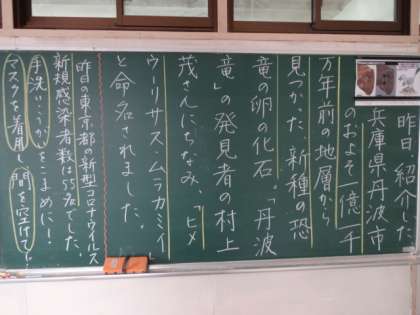 昨日紹介した
兵庫県丹波市
のおよそ一億一千
万年前の地層から
見つかった、新種の恐
竜の卵の化石。「丹波
竜」の発見者の村上
茂さんにちなみ、「ヒメ
ウーリサス・ムラカミイ」
と命名されました。
昨日の東京都の新型コロナウイルス
新規感染者数は55名でした。
手洗い・うがいをこまめに!
マスクを着用し、間を空けて…